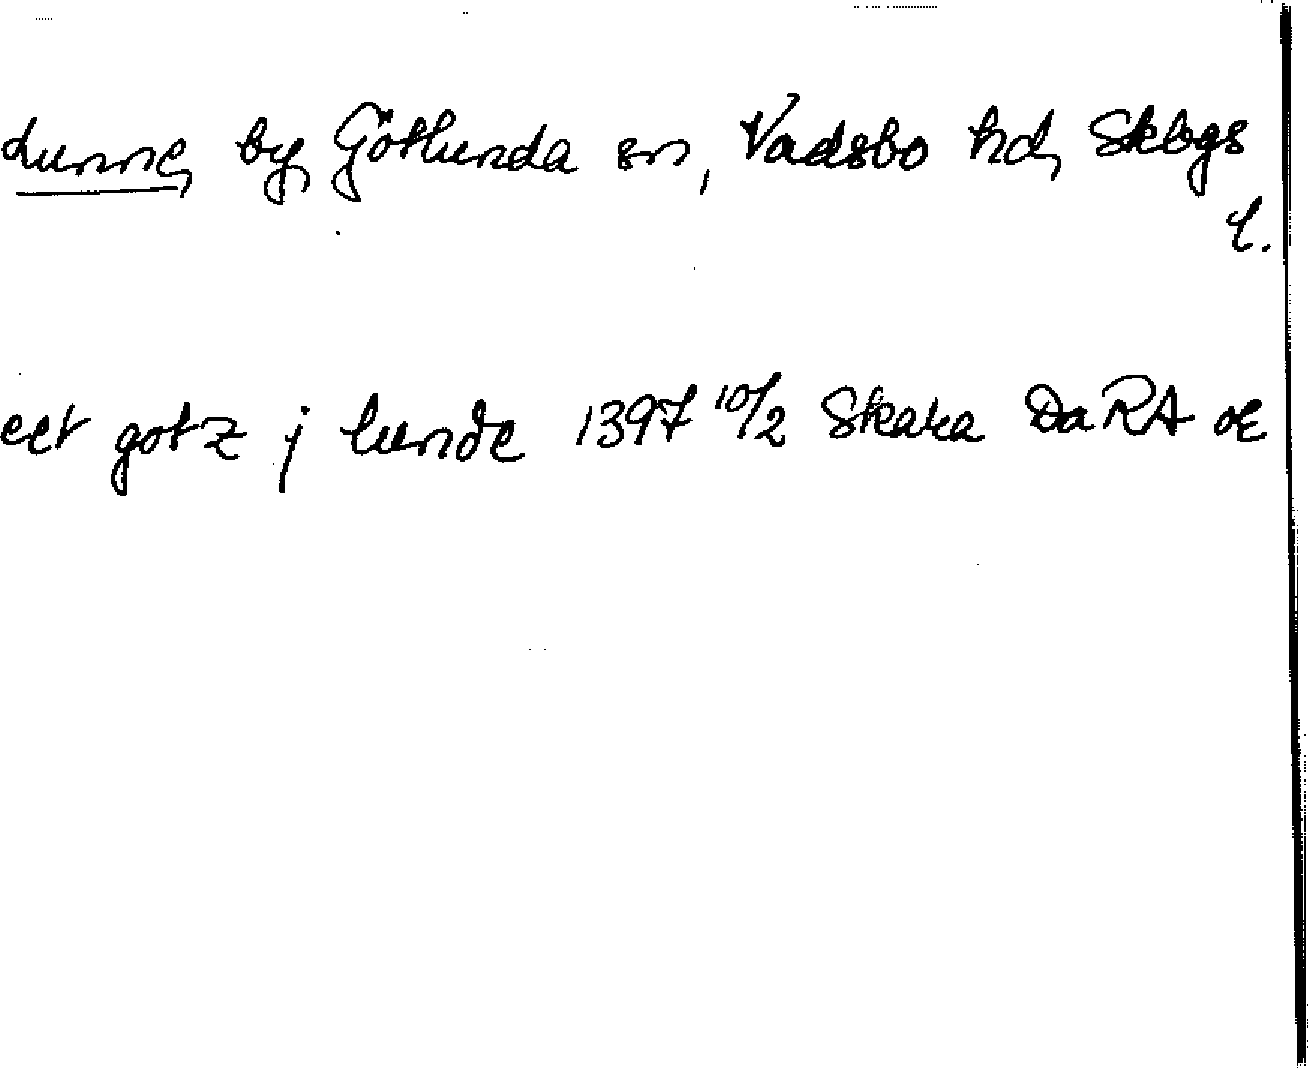 Lunne, by, Götlunda sn, Vadsbo hd, Skbgs
l.
eet gotz j lunde 1397 10/2 Skara DaRA or